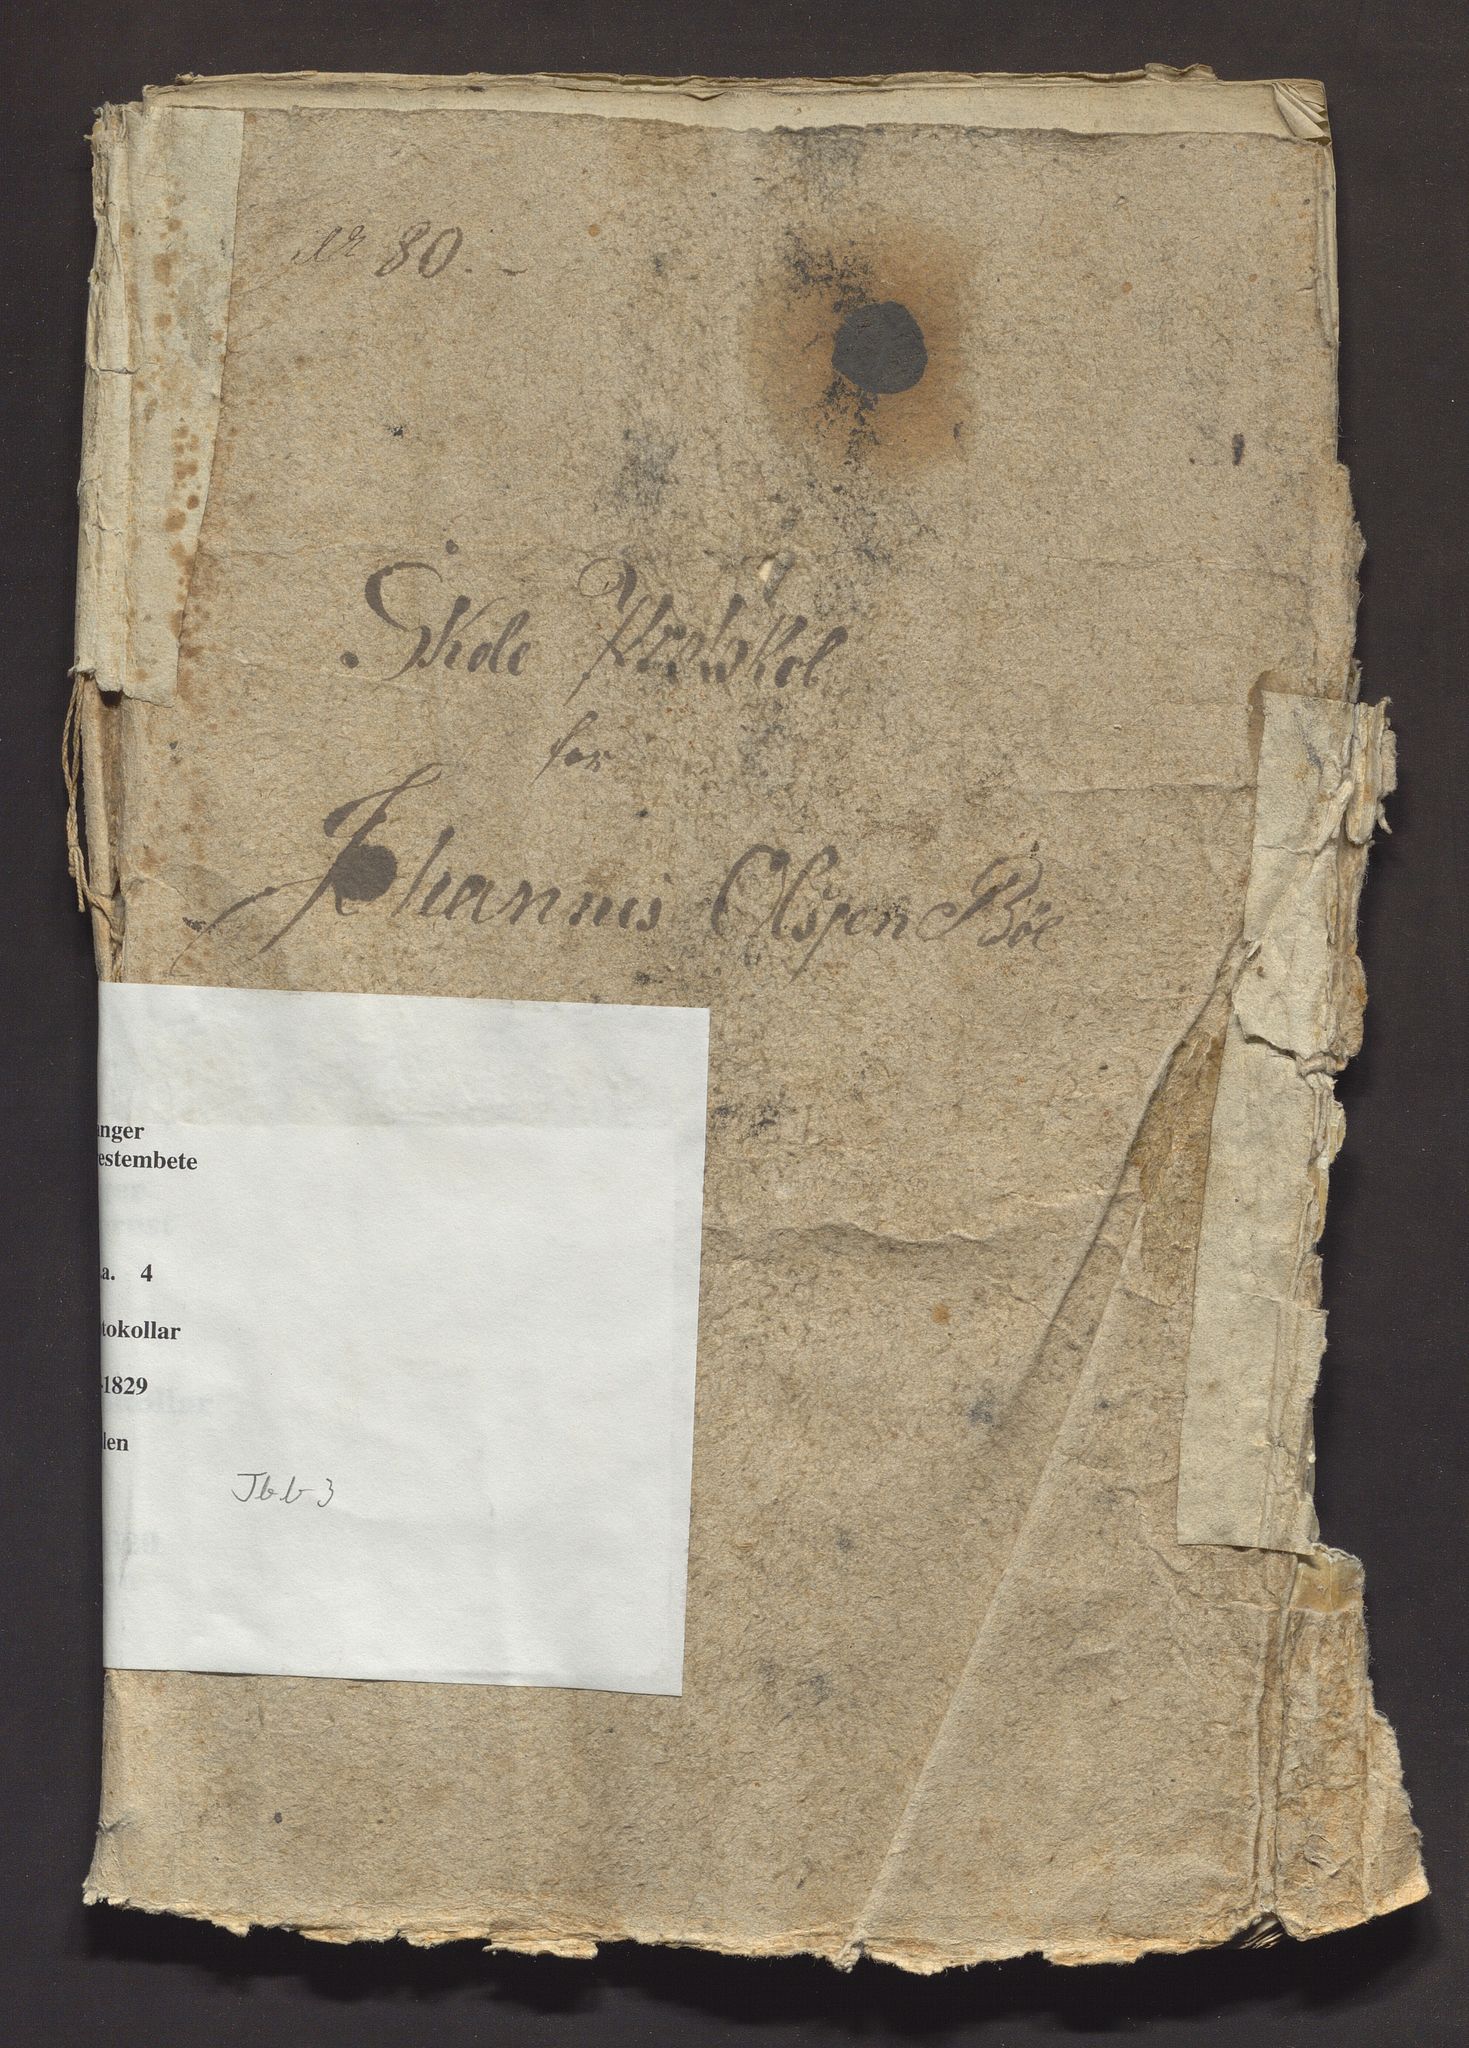 Nr 80.
Skole Protokol
for
Johannis Olsen Böe
anger
estembete
a. 4
tokollar
-1829
len
Jbb 3